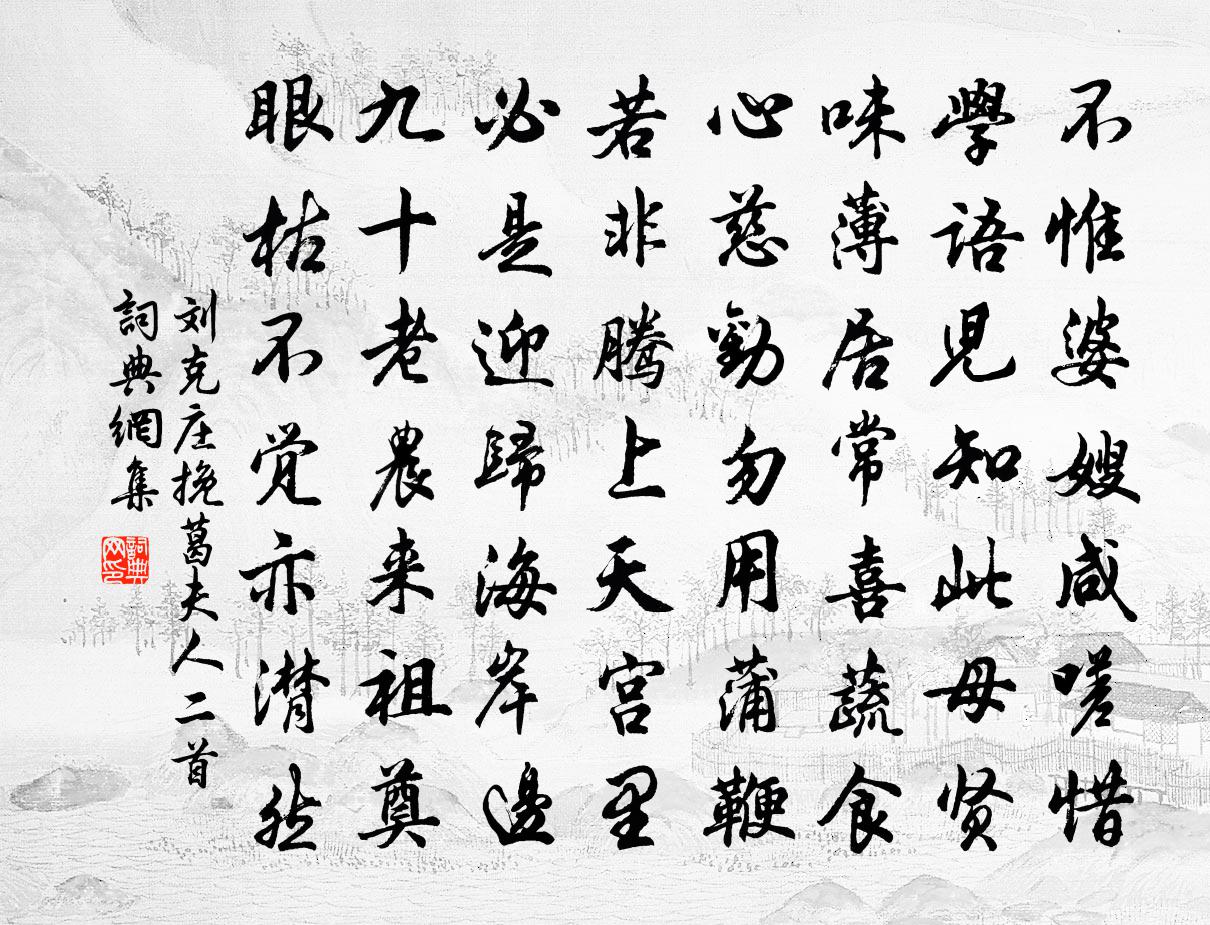 不惟婆嫂咸嗟惜
學語児知此母贤
味薄居常喜蔬食
心慈勸勿用蒲鞭
若非腾上天宫里
必是迎歸海岸邊
九十老農来祖奠
眼枯不觉亦潸然
刘克庄挽葛夫人二首
詞典網集
詞典网印